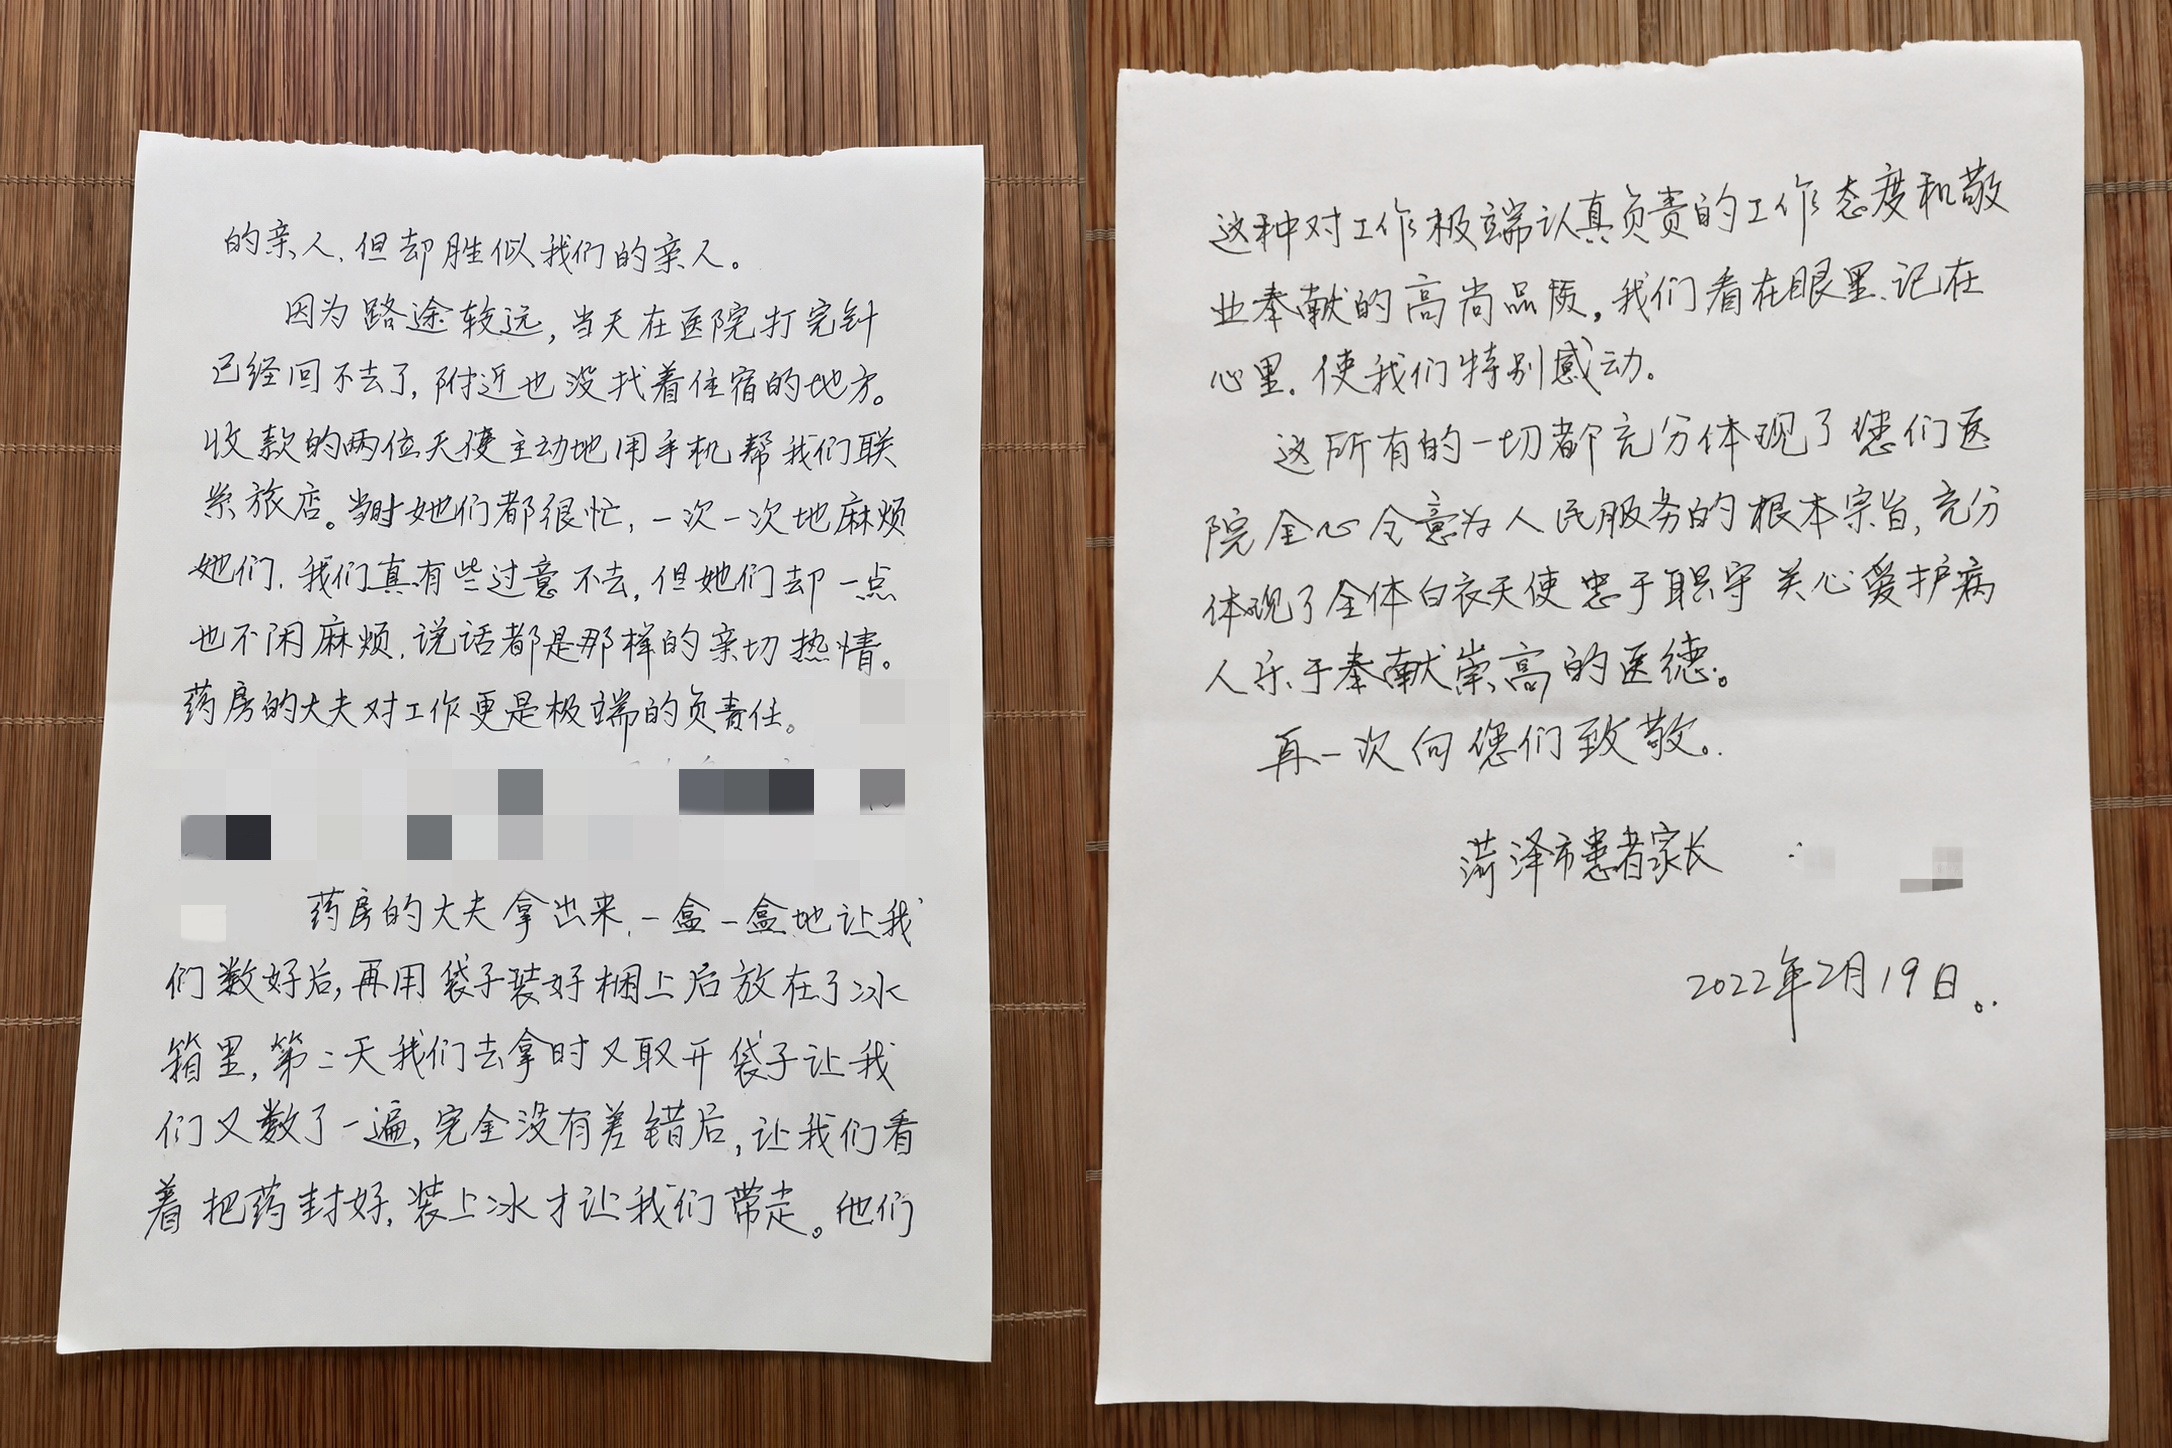 的亲人、但却胜似我们的亲人。
因为路途较远，当天在医院打完针
已经回不去了，附近也没找着住宿的地方。
收款的两位天使主动地用手机帮我们联
系旅店。当时她们都很忙，一次一次地麻烦
她们、我们真有些过意不去，但她们却一点
也不闲麻烦、说话都是那样的亲切热情。
药房的大夫对工作更是极端的负责任。
药房的大夫拿出来、一盒一盒地让我
们数好后，再用袋子装好捆上后放在了冰
箱里，第二天我们去拿时又取开袋子让我
们又数了一遍，完全没有差错后，让我们看
着把药封好，装上冰才让我们带走。他们
这种对工作极端认真负责的工作态度和敬
业奉献的高尚品质，我们看在眼里、记在
心里、使我们特别感动。
这所有的一切都充分体现了您们医
院全心全意为人民服务的根本宗旨，充分
体现了全体白衣天使忠于职守关心爱护病
人乐于奉献崇高的医德。
再一次向您们致敬。
菏泽市患者家长
2022年2月19日。